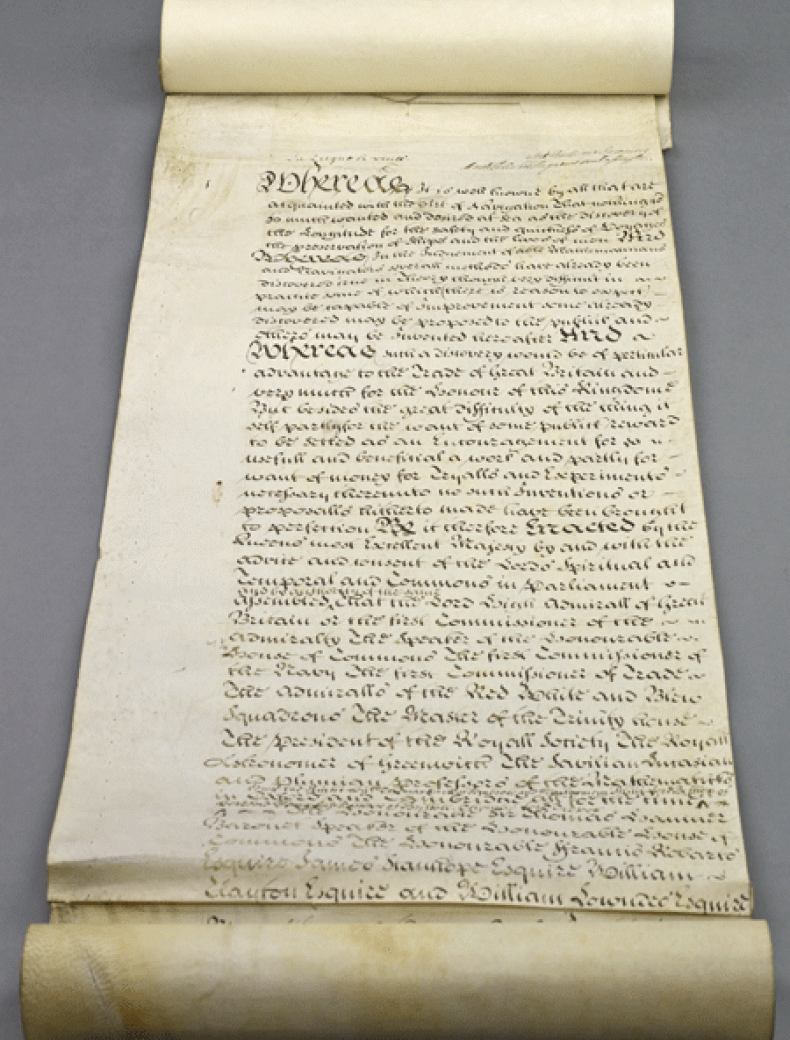 Whereas It is well known by all that are
acquainted with the Art of Navigation That nothing is
so much wanted and desired at Sea as the discovery of
the Longitude for the safety and quickness of Voyages
the preservation of Ships and the lives of men And
Whereas In the Judgment of able Mathematicians
and Navigators severall methods have already been
discovered true in Theory though very difficult in
practice some of which there is reason to expect
may be capable of Improvement some already
discovered may be proposed to the publick and
others may be Invented hereafter And
Whereas such a discovery would be of particular
advantage to the Trade of Great Britain and
very much for the Honour of this Kingdome
But besides the great difficulty of the thing it
self partly for the want of some publick reward
to be setled as an Encouragement for so
usefull and beneficial a work and partly for
want of money for Tryalls and Experiments
necessary thereunto no such Inventions or
proposalls hitherto made have been brought
to perfection Be it therefore Enacted by the
Queens most Excellent Majesty by and with the
advice and consent of the Lords Spiritual and
Temporal and Commons in Parliament
and by authority of the same
assembled, That the Lord High Admirall of Great
Britain or the first Commissioner of the
Admiralty The Speaker of the Honourable
House of Commons The first Commissioner of
the Navy The first Commissioner of Trade
The Admiralls of the Red White and Blew
Squadrons The Master of the Trinity house
The president of the Royall Society The Royall
Astronomer of Greenwich The Savilian Lucasian
and Plumian professors of the Mathematicks
in Oxford and Cambridge all for the time
The Honourable Sir Thomas Hanmer
Baronet Speaker of the Honourable House of
Commons The Honourable Francis Robarts
Esquire James Stanhope Esquire William
Clayton Esquire and William Lowndes Esquire